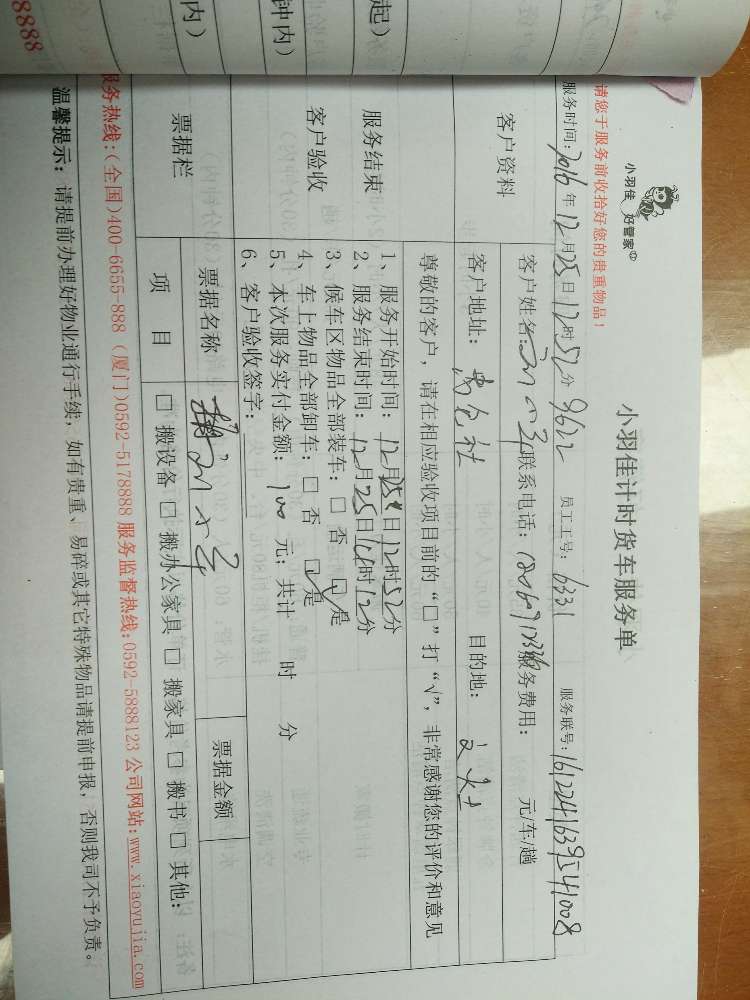 小羽佳 好管家
小羽佳计时货车服务单
请您于服务前收拾好您的贵重物品！
服务时间：2016年12月25日12时52分 员工工号：6331 服务联号：1612241639541008
客户资料
客户姓名： 联系电话： 服务费用： 元/车/趟
客户地址： 目的地：
尊敬的客户，请在相应验收项目前的“□”打“√”，非常感谢您的评价和意见
服务结束
客户验收
1、服务开始时间：12月25日12时52分
2、服务结束时间：12月25日14时12分
3、候车区物品全部装车：□ 否 ☑是
4、车上物品全部卸车：□ 否 ☑是
5、本次服务实付金额：100 元；共计 时 分
6、客户验收签字：
票据栏
票据名称 票据金额
项 目 □ 搬设备 □ 搬办公家具 □ 搬家具 □ 搬书 □ 其他：
服务热线：(全国)400-6655-888 (厦门)0592-5178888 服务监督热线：0592-5888123 公司网站：www.xiaoyujia.com
温馨提示：请提前办理好物业通行手续，如有贵重、易碎或其它特殊物品请提前申报，否则我司不予负责。
起）
钟内）
内）
8888